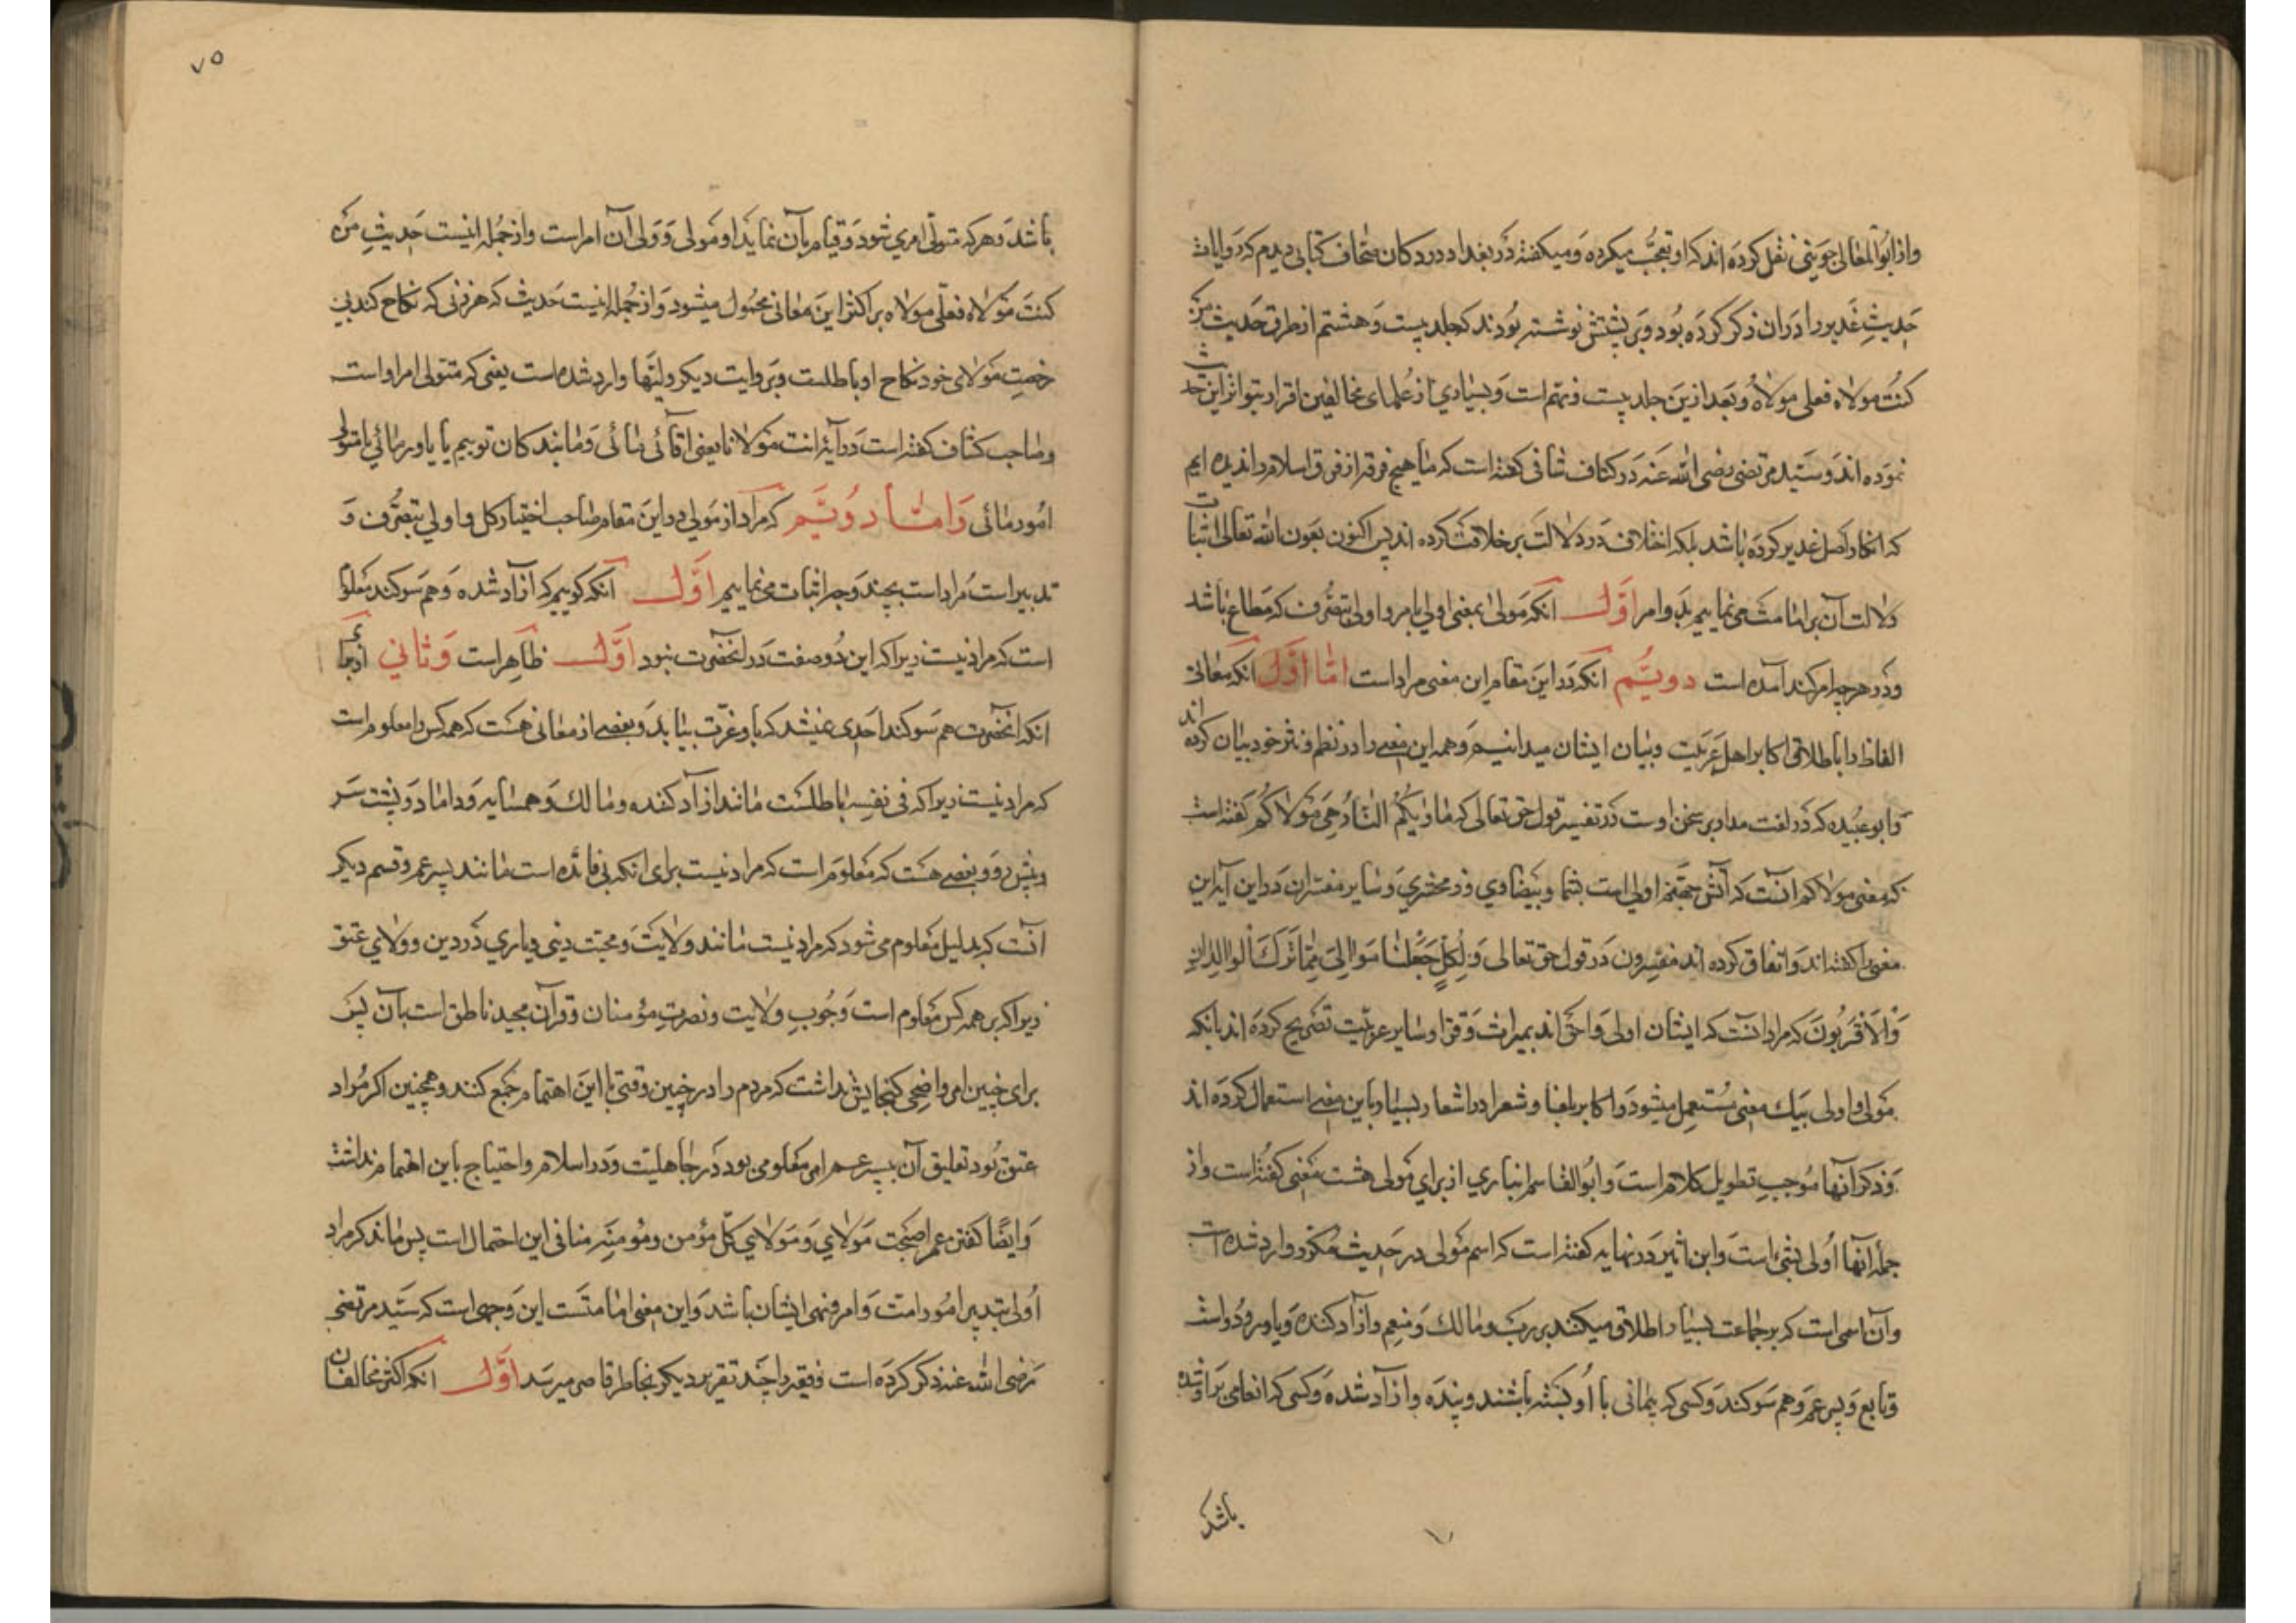 و از ابوالمعالی جوینی نقل کرده اند که او تعجب میکرده و میکفته در بغداد در دکان صحاف کتابی دیدم که روایات
حدیثِ غدیر را در ان ذکر کرده بود و بر پشتش نوشته بودند که جلد بیست و هشتم از طرق حدیث من
کنتُ مولاه فعلی مولاهُ و بعد ازین جلد بیست و نهم است و بسیاری از علمای مخالفین اقرار بتواتر این حدیث
نموده اند و سید مرتضی رضی الله عنه در کتاف شافی کفته است که ما هیچ فرقه از فرق اسلام را ندیده ایم
که انکار اصل غدیر کرده باشد بلکه اختلاف در دلالت بر خلافت کرده اند پس اکنون بعون الله تعالی اثبات
دلالت آن بر امامت می نماییم بدو امر اوّل انکه مولی بمعنی اولی بامر و اولی بتصرف که مطاع باشد
و در هر چه امر کند آمده است دویّم انکه در این مقام این معنی مراد است امّا اوّل انکه معانی
الفاظ را باطلاق اکابر اهل عربیت و بیان ایشان میدانیم و همه این معنی را در نظم و نثر خود بیان کرده اند
و ابو عبیده که در لغت مدار بر سخن اوست در تفسیر قول حق تعالی که مَاویکُم النّارُ هِیَ مَولاکُم کفته است
که معنی مولاکم آنست که آتش جهنم اولی است بشما و بیضاوی و زمخشری و سایر مفسران در این آیه این
معنی را کفته اند و اتفاق کرده اند مفسرون در قول حق تعالی وَ لِکُلٍّ جَعَلنا مَوالِیَ مِمّا تَرَکَ الوالِدانِ
وَالاَقرَبُونَ که مراد آنست که ایشان اولی و احق اند بمیراث و فرا و سایر عربیت تصریح کرده اند بانکه
مولی و اولی بیک معنی مُستعمل میشود و اکابر بلغا و شعرا در اشعار بسیار باین معنی استعمال کرده اند
و ذکر آنها مُوجبِ تطویل کلام است و ابُوالقاسم انباری از برای مولی هشت معنی کفته است و از
جمله آنها اُولی بشیء است و ابن اثیر در نهایه کفته است که اسم مولی در حدیث مکرر وارد شده است
و آن اسمی است که بر جماعت بسیار اطلاق میکنند بر رب و مالك و منعِم و آزاد کننده و یاور و دوست
و تابع و پسر عم و هم سوکند و کسی که پیمانی با او بسته باشند و بنده و ازاد شده و کسی که انعامی بر او شده
باشد
۷۵
باشد و هر که متولّی امری شود و قیام بآن نماید او مولی و ولی آن امر است و از جُمله اینست حَدیثِ مَن
کنتَ مولاه فعلی مولاه بر اکثر این معانی محمول میشود و از جُمله اینست حدیث که هر زنی که نکاح کند بی
رخصتِ مولای خود نکاح او باطلست و بروایت دیکر ولیّها وارد شده است یعنی که متولی امر او است
و صاحب کشاف کفته است در آیه انت مولانا یعنی آقائی مائی و ما بندکان توییم یا یاور مائی یا متولی
امُور مائی وَ امّا دُوّیَم که مراد از مولی در این مقام صاحب اختیار کل و اولی بتصرُّف و
تدبیر است مراد است بچند وجه اثبات می نماییم اَوّل آنکه کوییم که آزاد شده و هم سوکند معلوم
است که مراد نیست زیرا که این دُو صفت در انحضرت نبود اَوّل ظاهر است وَ ثانی از برای
انکه انحضرت هم سوکند احدی نمیشد که باو عزّت بیابد و بعضی از معانی هست که همه کس را معلوم است
که مراد نیست زیرا که فی نفسه باطلست مانند آزاد کننده و مالك و همسایه و داماد و پشت سَر
و پیش رو و بعضی هست که معلوم است که مراد نیست برای انکه بی فائده است مانند پسر عم و قسم دیکر
آنست که بدلیل معلوم می شود که مراد نیست مانند ولایت و محبت دینی و یاری در دین و ولای عتق
زیرا که بر همه کس معلوم است وجُوبِ ولایت و نصرت مؤمنان و قرآن مجید ناطق است بآن پس
برای چنین امر واضحی کنجایش نداشت که مردم را در چنین وقتی با این اهتمام جمع کنند و همچنین اکر مُراد
عتق بُود تعلیق آن به پسر عم امر معلومی بود در جاهلیت و در اسلام و احتیاج باین اهتمام نداشت
وَ ایضًا کفتن عمر اصبَحتَ مَولای وَ مَولای کلّ مؤمن و مؤمنَه منافی این احتمال است پس ماند که مراد
اُولی بتدبیر امُور امت و امر و نهی ایشان باشد و این معنی امامتَست این وجهی است که سیّد مرتضی
رضی الله عنه ذکر کرده است و فقیر را چند تقریر دیکر بخاطر قاصر میرسد اَوّل آنکه اکثر مخالفان